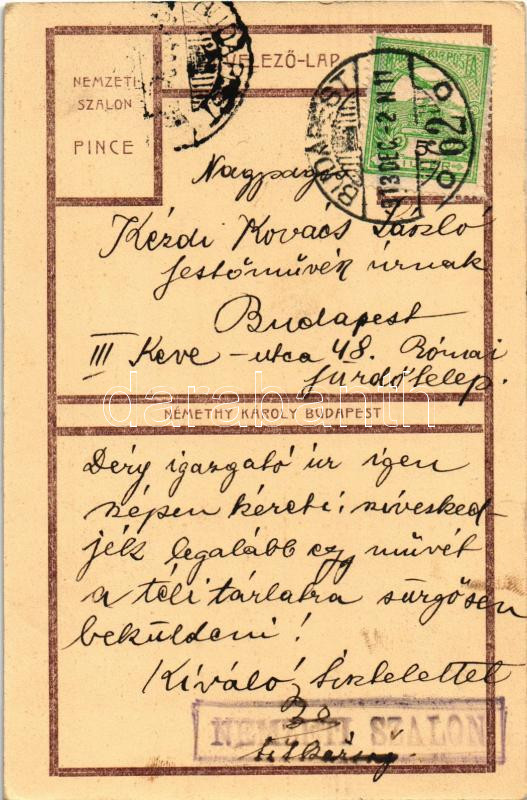 NEMZETI
SZALON
PINCE
VELEZŐ-LAP
BUDAPEST
BUDAPEST
913 DEC. 2 N 11
Nagyságos
Kézdi Kovács László
festőművék úrnak
Budapest
III Keve-utca 48. Római
fürdőtelep.
darabanth
NÉMETHY KÁROLY BUDAPEST
Déry igazgató úr igen
szépen kéreti: szivesked-
jék legalább egy művét
a téli tárlatra sürgősen
beküldeni!
Kiváló tisztelettel
NEMZETI SZALON
titkárság